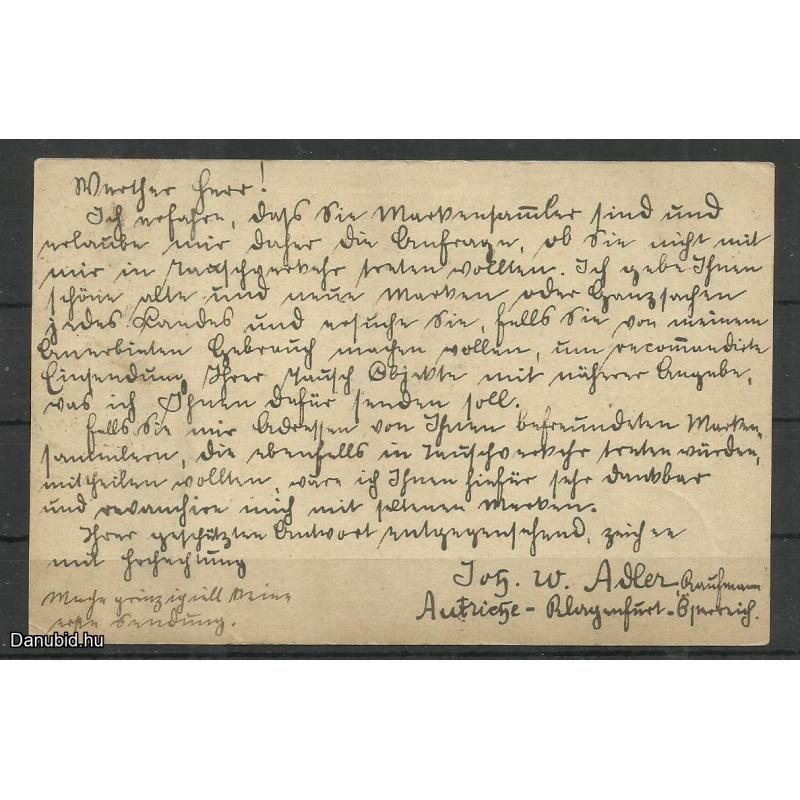 Werther Herr!
Ich erfahre, dass Sie Markensammler sind und
erlaube mir daher die Anfrage, ob Sie nicht mit
mir in Tauschverkehr treten wollten. Ich gebe Ihnen
schöne alte und neue Marken oder Ganzsachen
jedes Landes und ersuche Sie, falls Sie von meinem
Anerbieten Gebrauch machen wollen, um recommandirte
Einsendung Ihrer Tausch Objekte mit näherer Angabe,
was ich Ihnen dafür senden soll.
Falls Sie mir Adressen von Ihnen befreundeten Marken-
sammlern, die ebenfalls in Tauschverkehr treten würden,
mittheilen wollten, wäre ich Ihnen hiefür sehr dankbar
und revanchire mich mit seltenen Marken.
Ihrer geschützten Antwort entgegensehend, zeichne
mit Hochachtung
Joh. W. Adler, Kaufmann
Autriche - Klagenfurt - Österreich.
Mache prinzipiell keine
erste Sendung.
Danubid.hu